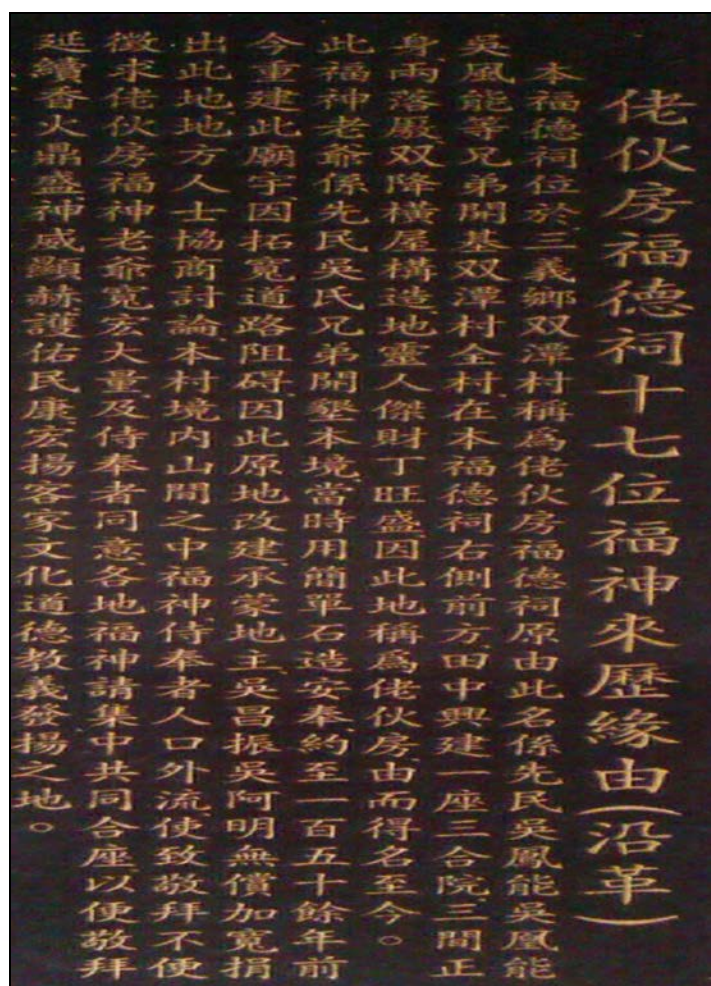 佬伙房福德祠十七位福神來歷緣由(沿革)
本福德祠位於三義鄉双潭村稱為佬伙房福德祠原由此名係先民吳鳳能吳凰能
吳風能等兄弟開基双潭村全村在本福德祠右側前方田中興建一座三合院三間正
身兩落廒双降橫屋構造地靈人傑財丁旺盛因此地稱為佬伙房由而得名至今。
此福神老爺係先民吳氏兄弟開墾本境當時用簡單石造安奉約至一百五十餘年前
今重建此廟宇因拓寬道路阻碍因此原地改建承蒙地主吳昌振吳阿明無償加寬捐
出此地地方人士協商討論本村境內山間之中福神侍奉者人口外流使致敬拜不便
徵求佬伙房福神老爺寬宏大量及侍奉者同意各地福神請集中共同合座以便敬拜
延續香火鼎盛神威顯赫護佑民康宏揚客家文化道德教義發揚之地。